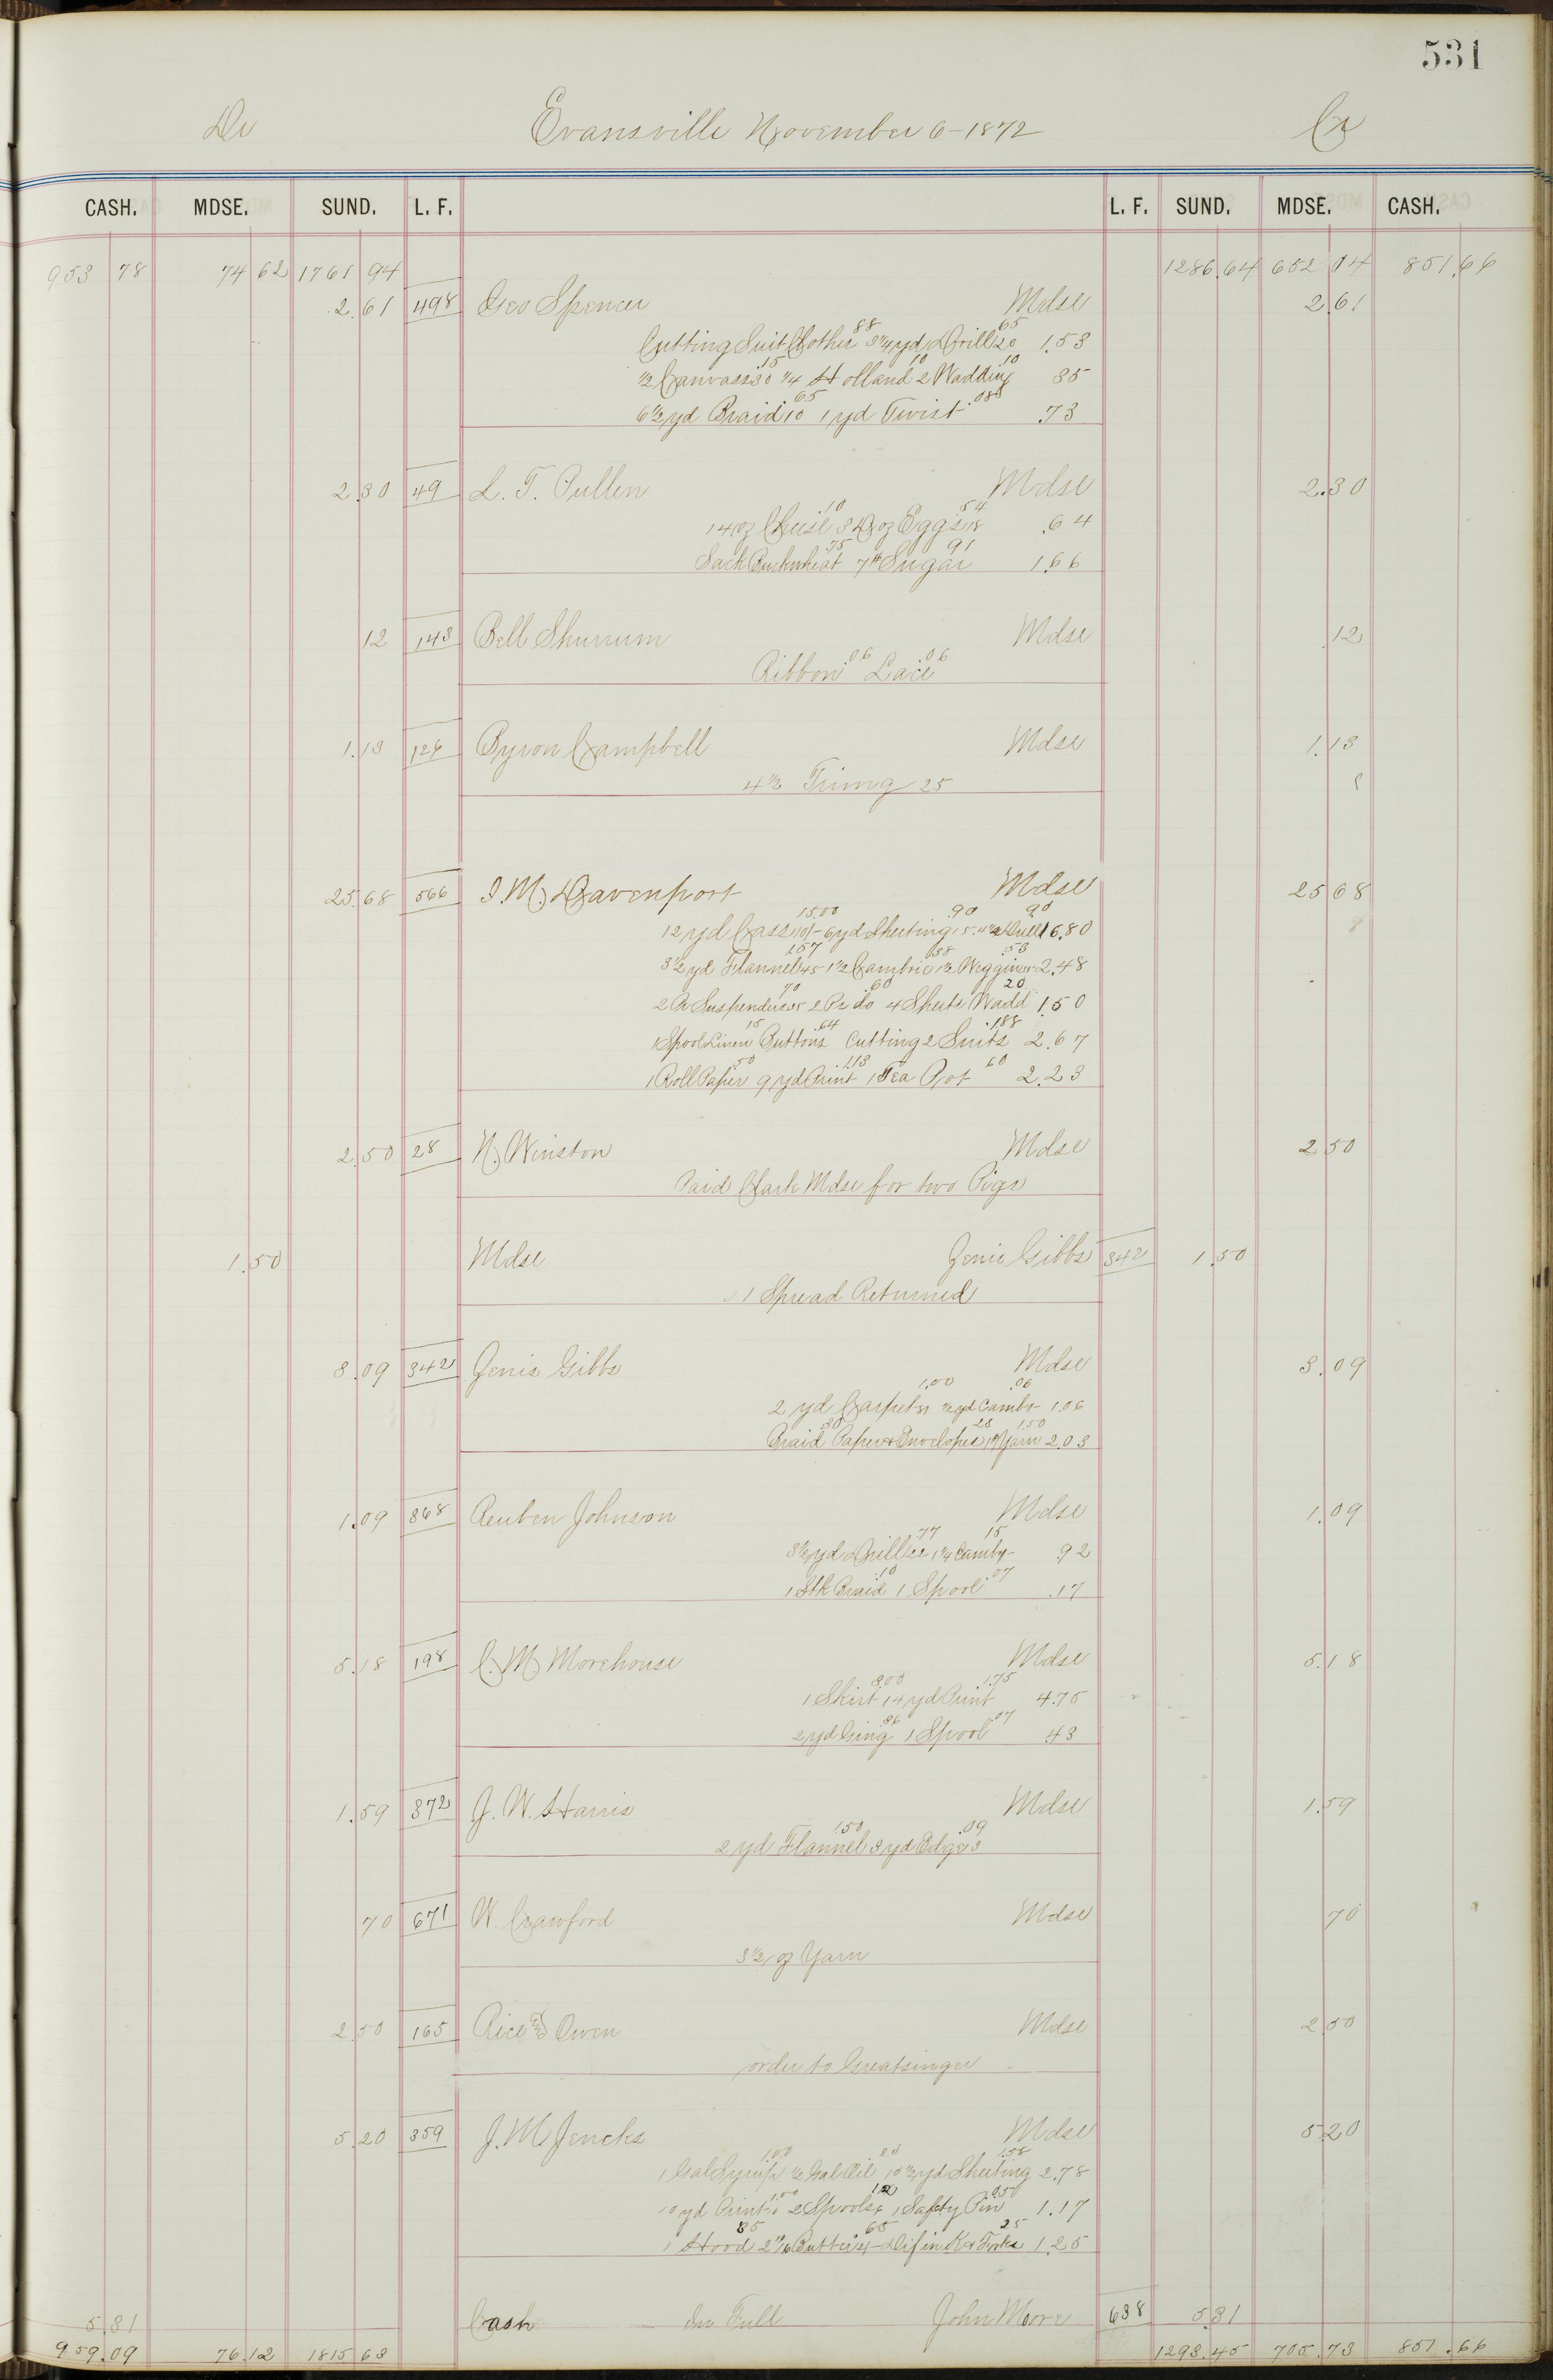 531
Dr Evansville November 6-1872 Cr
CASH. MDSE. SUND. L. F. L. F. SUND. MDSE. CASH.
953 78 74 62 1761 94 1286.64 652 04 851.66
2.61 498 Geo Spencer Mdse 2.61
88 65
Cutting Suit Clothes 3 1/4 yd Drill 20 1.53
15 10 10
1/2 Canvass 30 1/4 Holland 2 Wadding 35
65 08
6 1/2 yd Braid 10 1 yd Twist .73
2.30 49 L. T. Pullen Mdse 2.30
10 54
14 oz Cheese 3 Doz Eggs 18 .64
.75 91
Sack Buckwheat 7# Sugar 1.66
12 143 Bell Shurrum Mdse 12
06 06
Ribbon Lace
1.13 126 Byron Campbell Mdse 1.13
4 1/2 Trimg 25
25.68 566 I. M. Davenport Mdse 25 68
15.00 .90 90
12 yd Cass 10/- 6 yd Sheeting 15. 4 1/2 Drill 16.80
1.57 .38 .53
3 1/2 yd Flannel 45 1 1/2 Cambric 1 1/2 Wiggin 2.48
70 .60 20
2 Pr Suspenders 35 2 Pr do 4 Sheets Wadd 1.50
15 .64 1.88
1 Spool Linen Buttons Cutting 2 Suits 2.67
.50 1.13 60
1 Roll Paper 9 yd Print 1 Tea Pot 2.23
2.50 28 N. Winston Mdse 2 50
Paid Clark Mdse for two Pigs
1.50 Mdse Genie Gibbs 342 1.50
1 Spread Returned
3.09 342 Genie Gibbs Mdse 3.09
1.00 .06
2 yd Carpet 1/2 yd Camb 1.06
30 23 1.50
Braid Paper & Envelopes Yarn 2.03
1.09 368 Reuben Johnson Mdse 1.09
.77 15
3 1/2 yd Drill 22 1 1/4 Camb 92
10 07
1 Stk Braid 1 Spool .17
5.18 198 C. M. Morehouse Mdse 5.18
3.00 1.75
1 Skirt 14 yd Print 4.75
36 07
2 yd Ging 1 Spool .43
1.59 372 J. W. Harris Mdse 1.59
1.50 .09
2 yd Flannel 3 yd Edge 3
70 671 W. Crawford Mdse 70
3 1/2 oz Yarn
2.50 165 Rice and Owen Mdse 2.50
order to Greatsinger
5.20 359 J. M. Jencks Mdse 5.20
1.00 20 1.58
1 Gal Syrup 1/2 Gal Oil 10 1/2 yd Sheeting 2.78
1.00 12 .05
10 yd Print 10 2 Spools 6 1 Safety Pin 1.17
35 65 25
1 Hood Butter Dif in K & Forks 1.25
5.31 Cash In Full John Moore 638 5.31
959.09 76.12 1815 63 1293.45 705.73 851.66